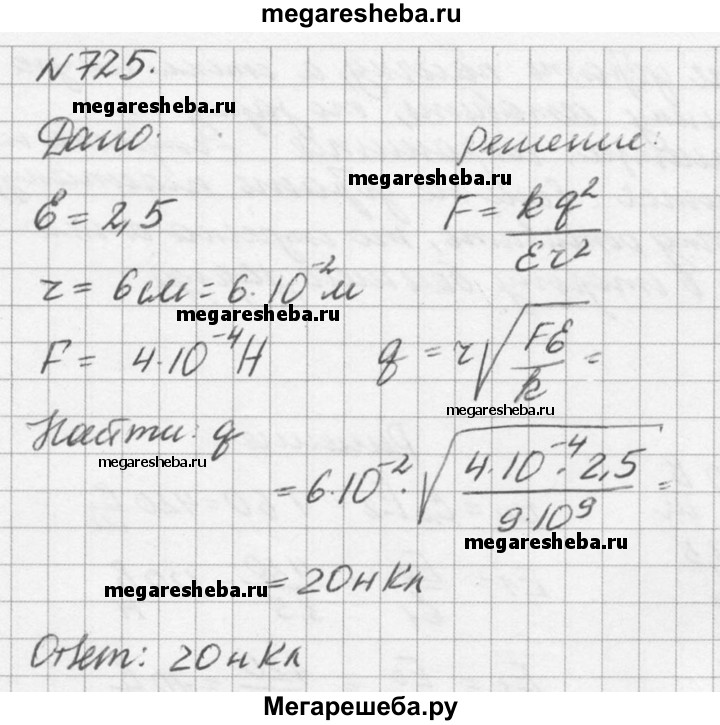 megaresheba.ru
N725.
megaresheba.ru
Дано:
Решение:
megaresheba.ru
Ɛ = 2,5
F = kq² / Ɛr²
r = 6 см = 6·10⁻² м
megaresheba.ru
F = 4·10⁻⁴ Н
q = r√(FƐ / k) =
megaresheba.ru
Найти: q
megaresheba.ru
= 6·10⁻²·√(4·10⁻⁴·2,5 / 9·10⁹) =
megaresheba.ru
megaresheba.ru
= 20 нКл
Ответ: 20 нКл
Мегарешеба.ру